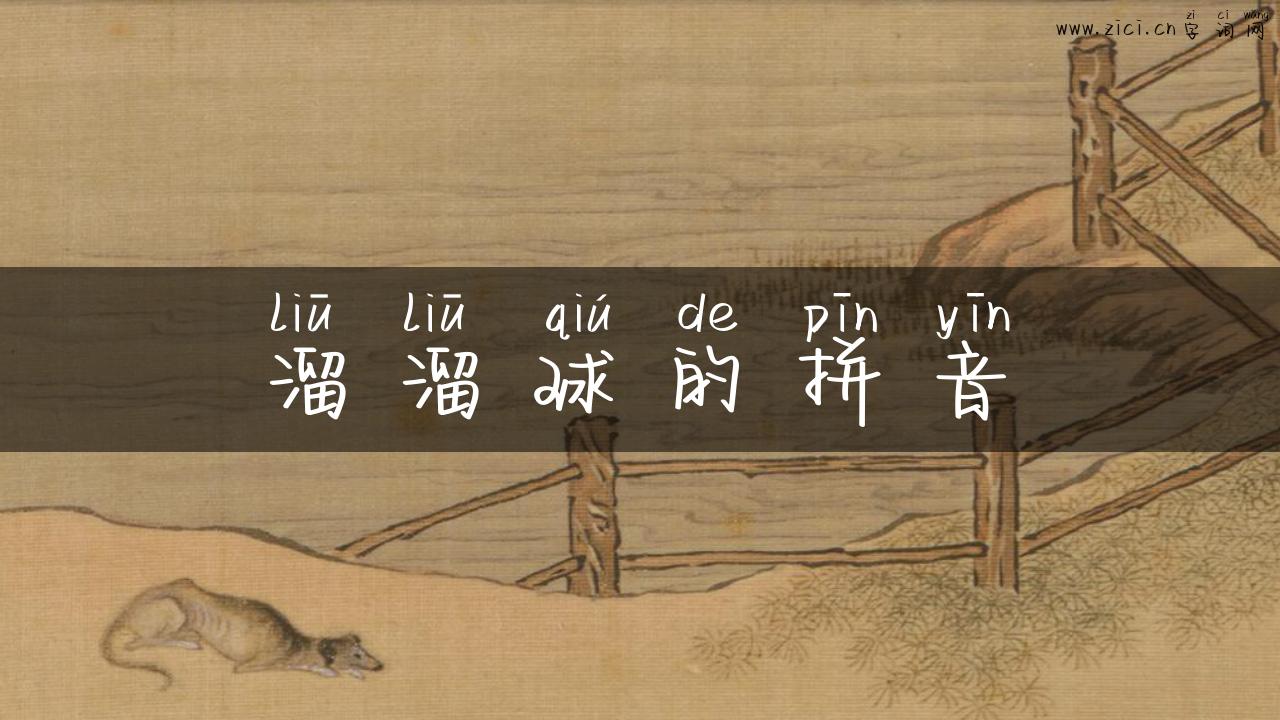 zì cí wǎng
www.zici.cn 字词网
liū liū qiú de pīn yīn
溜溜球的拼音